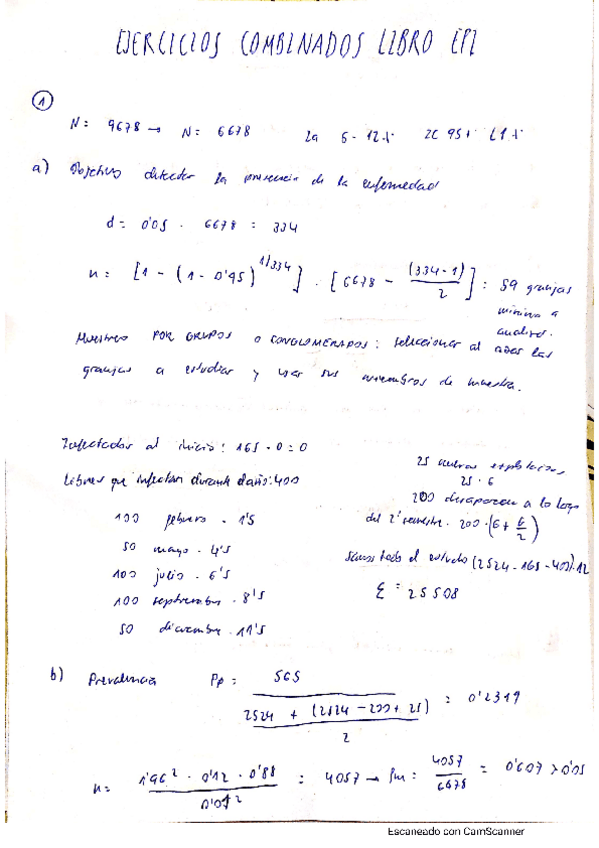 EJERCICIOS COMBINADOS LIBRO EPI
1
N= 9678 → N= 6678 6-12% 95% L1%
a) Objetivo detectar la presencia de la enfermedad
d= 0'05 . 6678 = 334
n= [1 - (1 - 0'95)^1/334] . [6678 - (334-1)/2] = 59 granjas
mínimo a
analizar.
Muestreo POR GRUPOS o CONGLOMERADOS: seleccionar al azar las
granjas a estudiar y usar sus miembros de muestra.
Infectados al inicio: 165 . 0 = 0
Libres que infectan durante el año: 400
100 febrero . 1'5
50 mayo . 4'5
100 julio . 6'5
100 septiembre . 8'5
50 diciembre . 11'5
25 nuevas explotaciones
25 . 6
200 desaparecen a lo largo
del 2º semestre . 200 . (6 + 6/2)
Sanos todo el estudio (2524 - 165 - 400) . 12
Σ = 25508
b) Prevalencia Pp = 565 / ((2524 + (2524 - 200 + 25)) / 2) = 0'2319
n= 1'96² . 0'12 . 0'88 / 0'01² = 4057 → fm = 4057/6678 = 0'607 > 0'05
Escaneado con CamScanner